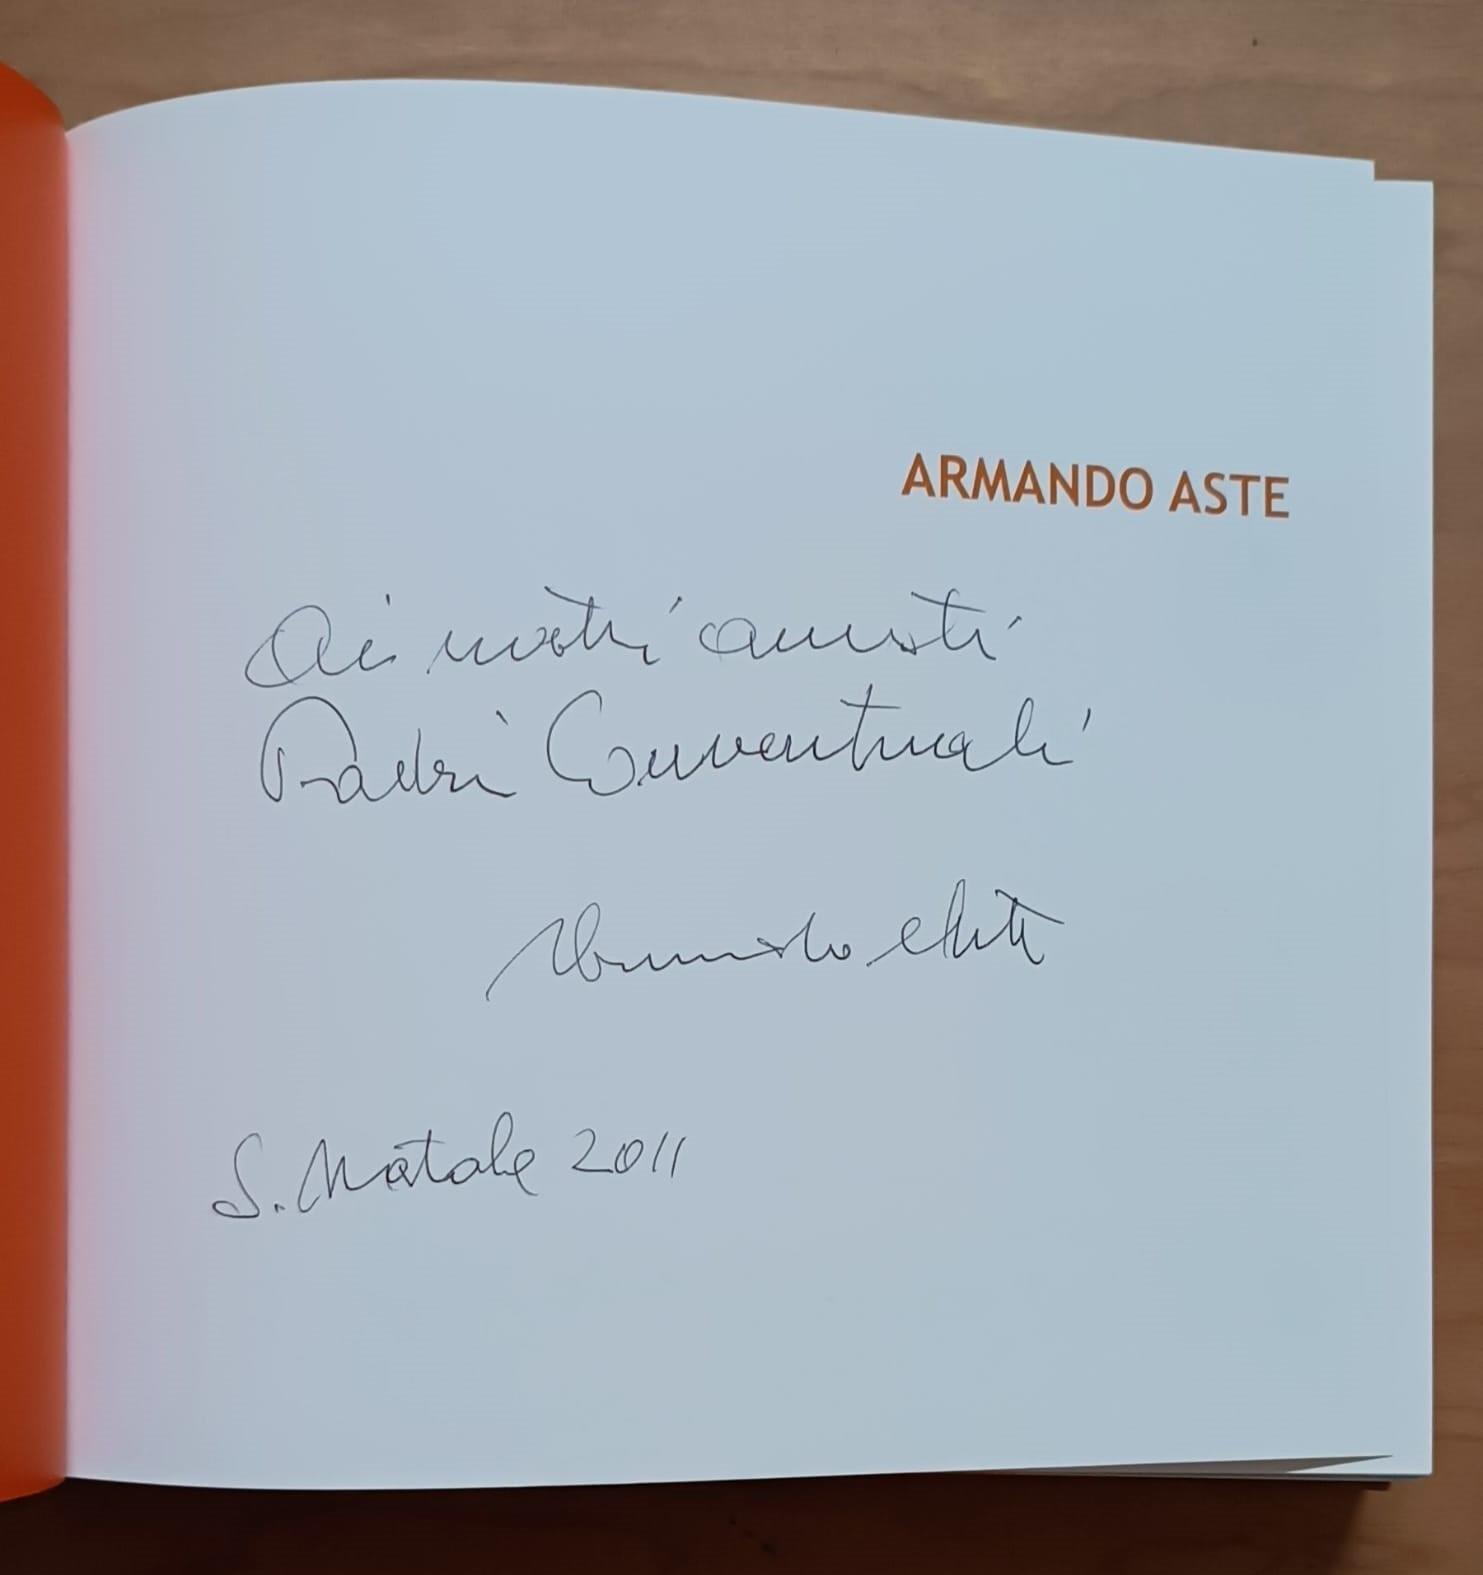 ARMANDO ASTE
Ai nostri amati
Padri Conventuali
Armando Aste
S. Natale 2011